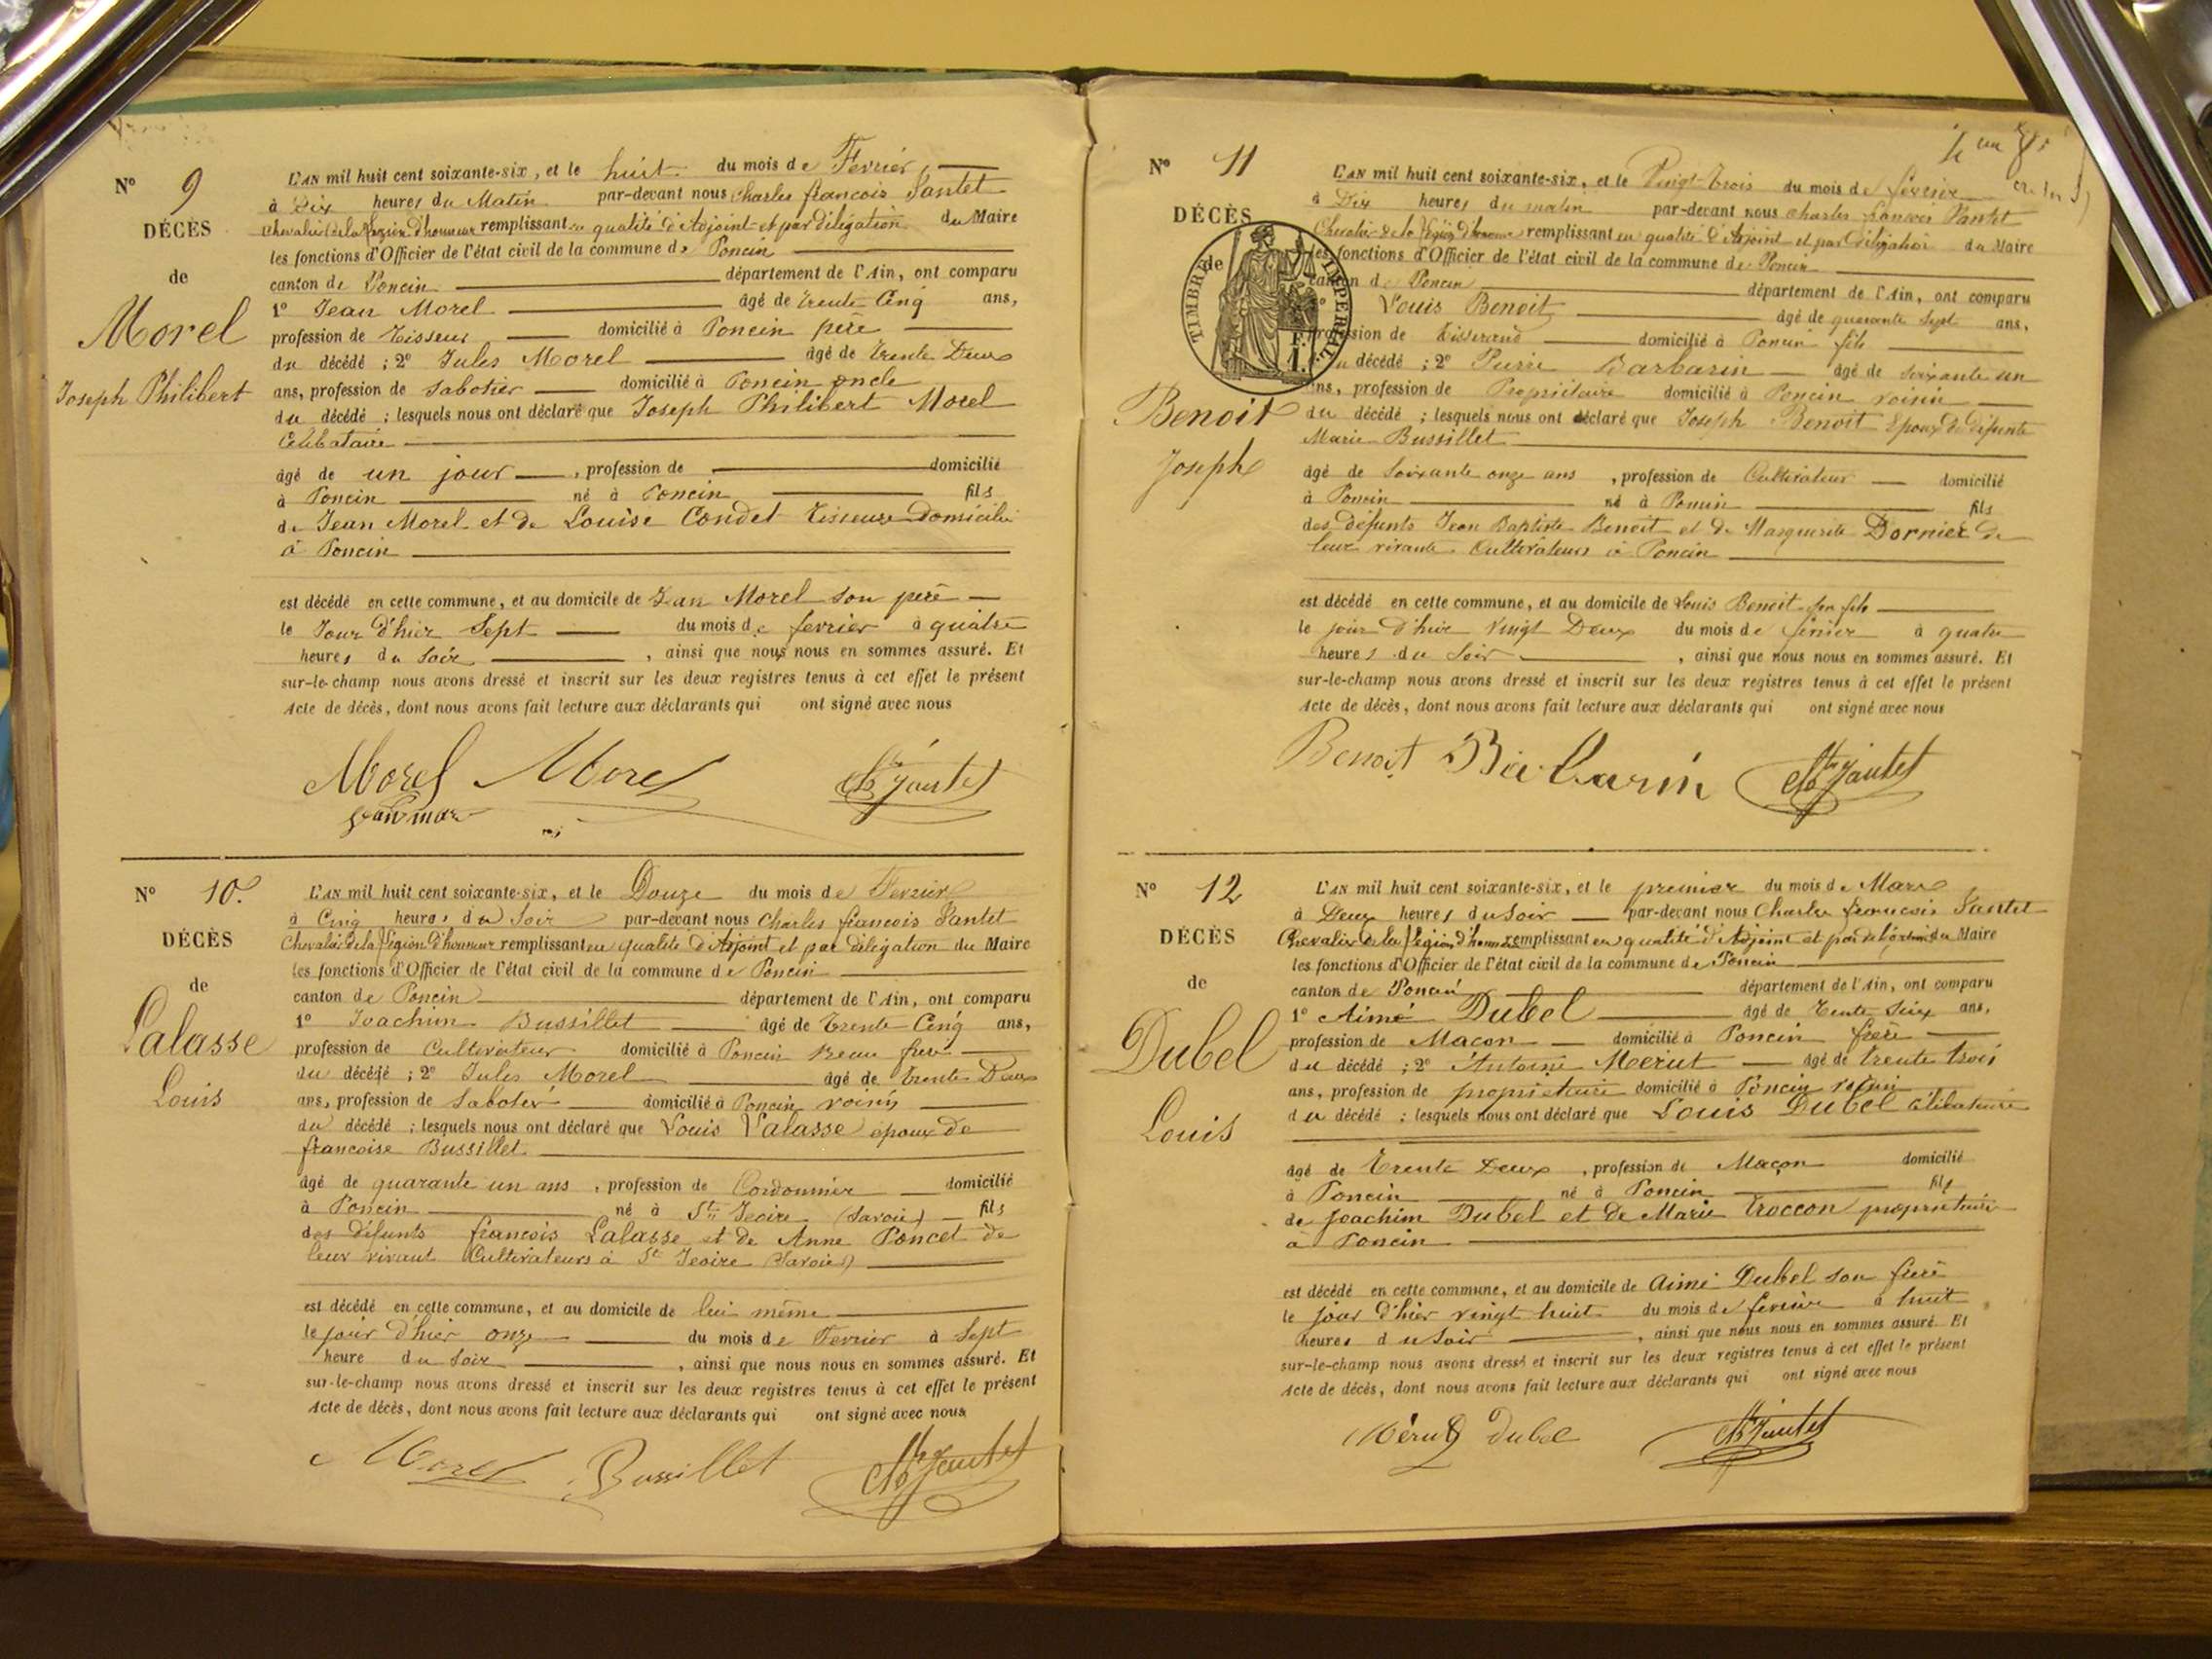 N° 9
DÉCÈS
de
Morel
Joseph Philibert
L'AN mil huit cent soixante-six, et le huit du mois de Fevrier
à Dix heures du Matin par-devant nous Charles francois Jantet
Chevalier de la Légion d'honneur remplissant en qualité d'Adjoint et par déligation du Maire
les fonctions d'Officier de l'état civil de la commune de Poncin
canton de Poncin département de l'Ain, ont comparu
1° Jean Morel âgé de trente Cinq ans,
profession de Tisseur domicilié à Poncin père
du décédé ; 2° Jules Morel âgé de trente Deux
ans, profession de Sabotier domicilié à Poncin oncle
du décédé ; lesquels nous ont déclaré que Joseph Philibert Morel
Célibataire
âgé de un jour , profession de domicilié
à Poncin né à Poncin fils
de Jean Morel et de Louise Condet Tisseurs Domicilié
à Poncin
est décédé en cette commune, et au domicile de Jean Morel son père
le Jour d'hier Sept du mois de fevrier à quatre
heures du Soir , ainsi que nous nous en sommes assuré. Et
sur-le-champ nous avons dressé et inscrit sur les deux registres tenus à cet effet le présent
Acte de décès, dont nous avons fait lecture aux déclarants qui ont signé avec nous
Morel Morel Jantet
N° 10.
DÉCÈS
de
Lalasse
Louis
L'AN mil huit cent soixante-six, et le Douze du mois de Fevrier
à Cinq heures du Soir par-devant nous Charles francois Jantet
Chevalier de la Légion d'honneur remplissant en qualité d'Adjoint et par déligation du Maire
les fonctions d'Officier de l'état civil de la commune de Poncin
canton de Poncin département de l'Ain, ont comparu
1° Joachim Bussillet âgé de trente Cinq ans,
profession de Cultivateur domicilié à Poncin Beau frère
du décédé ; 2° Jules Morel âgé de trente Deux
ans, profession de Sabotier domicilié à Poncin voisin
du décédé ; lesquels nous ont déclaré que Louis Lalasse époux de
francoise Bussillet
âgé de quarante un ans , profession de Cordonnier domicilié
à Poncin né à St Jeoire (Savoie) fils
des défunts francois Lalasse et de Anne Poncet de
leur vivant Cultivateurs à St Jeoire (Savoie)
est décédé en cette commune, et au domicile de lui même
le jour d'hier onze du mois de Fevrier à Sept
heure du Soir , ainsi que nous nous en sommes assuré. Et
sur-le-champ nous avons dressé et inscrit sur les deux registres tenus à cet effet le présent
Acte de décès, dont nous avons fait lecture aux déclarants qui ont signé avec nous
Morel Bussillet Jantet
N° 11
DÉCÈS
de
TIMBRE IMPÉRIAL
1 F.
Benoit
Joseph
L'AN mil huit cent soixante-six, et le Vingt-trois du mois de fevrier
à Dix heures du matin par-devant nous Charles francois Jantet
Chevalier de la Légion d'honneur remplissant en qualité d'Adjoint et par déligation du Maire
les fonctions d'Officier de l'état civil de la commune de Poncin
canton de Poncin département de l'Ain, ont comparu
Louis Benoit âgé de quarante Sept ans,
profession de tisserand domicilié à Poncin fils
du décédé ; 2° Pierre Barbarin âgé de soixante un
ans, profession de Propriétaire domicilié à Poncin voisin
du décédé ; lesquels nous ont déclaré que Joseph Benoit Epoux de défunte
Marie Bussillet
âgé de Soixante onze ans , profession de Cultivateur domicilié
à Poncin né à Poncin fils
des défunts Jean Baptiste Benoit et de Marguerite Dornier de
leur vivante Cultivateurs à Poncin
est décédé en cette commune, et au domicile de Louis Benoit son fils
le jour d'hier vingt Deux du mois de fevrier à quatre
heures du Soir , ainsi que nous nous en sommes assuré. Et
sur-le-champ nous avons dressé et inscrit sur les deux registres tenus à cet effet le présent
Acte de décès, dont nous avons fait lecture aux déclarants qui ont signé avec nous
Benoit Barbarin Jantet
N° 12
DÉCÈS
de
Dubel
Louis
L'AN mil huit cent soixante-six, et le premier du mois de Mars
à Deux heures du Soir par-devant nous Charles francois Jantet
Chevalier de la Légion d'honneur remplissant en qualité d'Adjoint et par délégation du Maire
les fonctions d'Officier de l'état civil de la commune de Poncin
canton de Poncin département de l'Ain, ont comparu
1° Aimé Dubel âgé de trente Six ans,
profession de Macon domicilié à Poncin frère
du décédé ; 2° Antoine Merut âgé de trente trois
ans, profession de propriétaire domicilié à Poncin voisin
du décédé ; lesquels nous ont déclaré que Louis Dubel célibataire
âgé de trente Deux , profession de Maçon domicilié
à Poncin né à Poncin fils
de Joachim Dubel et de Marie Troccon propriétaire
à Poncin
est décédé en cette commune, et au domicile de Aimé Dubel son frère
le jour d'hier vingt huit du mois de fevrier à huit
heures du Soir , ainsi que nous nous en sommes assuré. Et
sur-le-champ nous avons dressé et inscrit sur les deux registres tenus à cet effet le présent
Acte de décès, dont nous avons fait lecture aux déclarants qui ont signé avec nous
Mérut Dubel Jantet